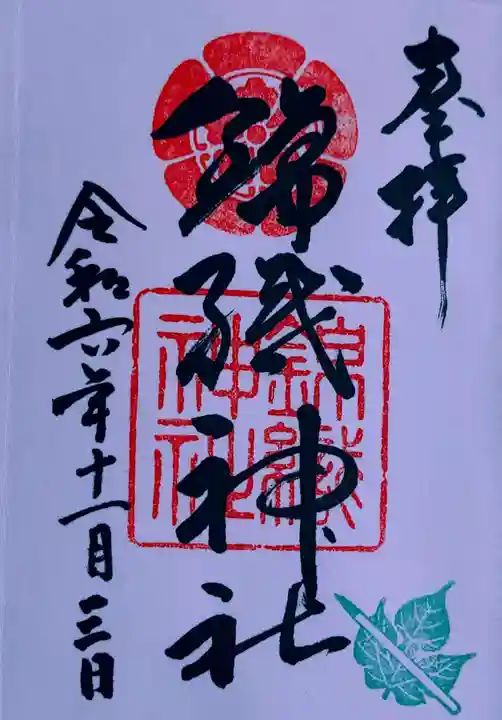 奉拝
錦織神社
錦織神社
令和六年十一月三日